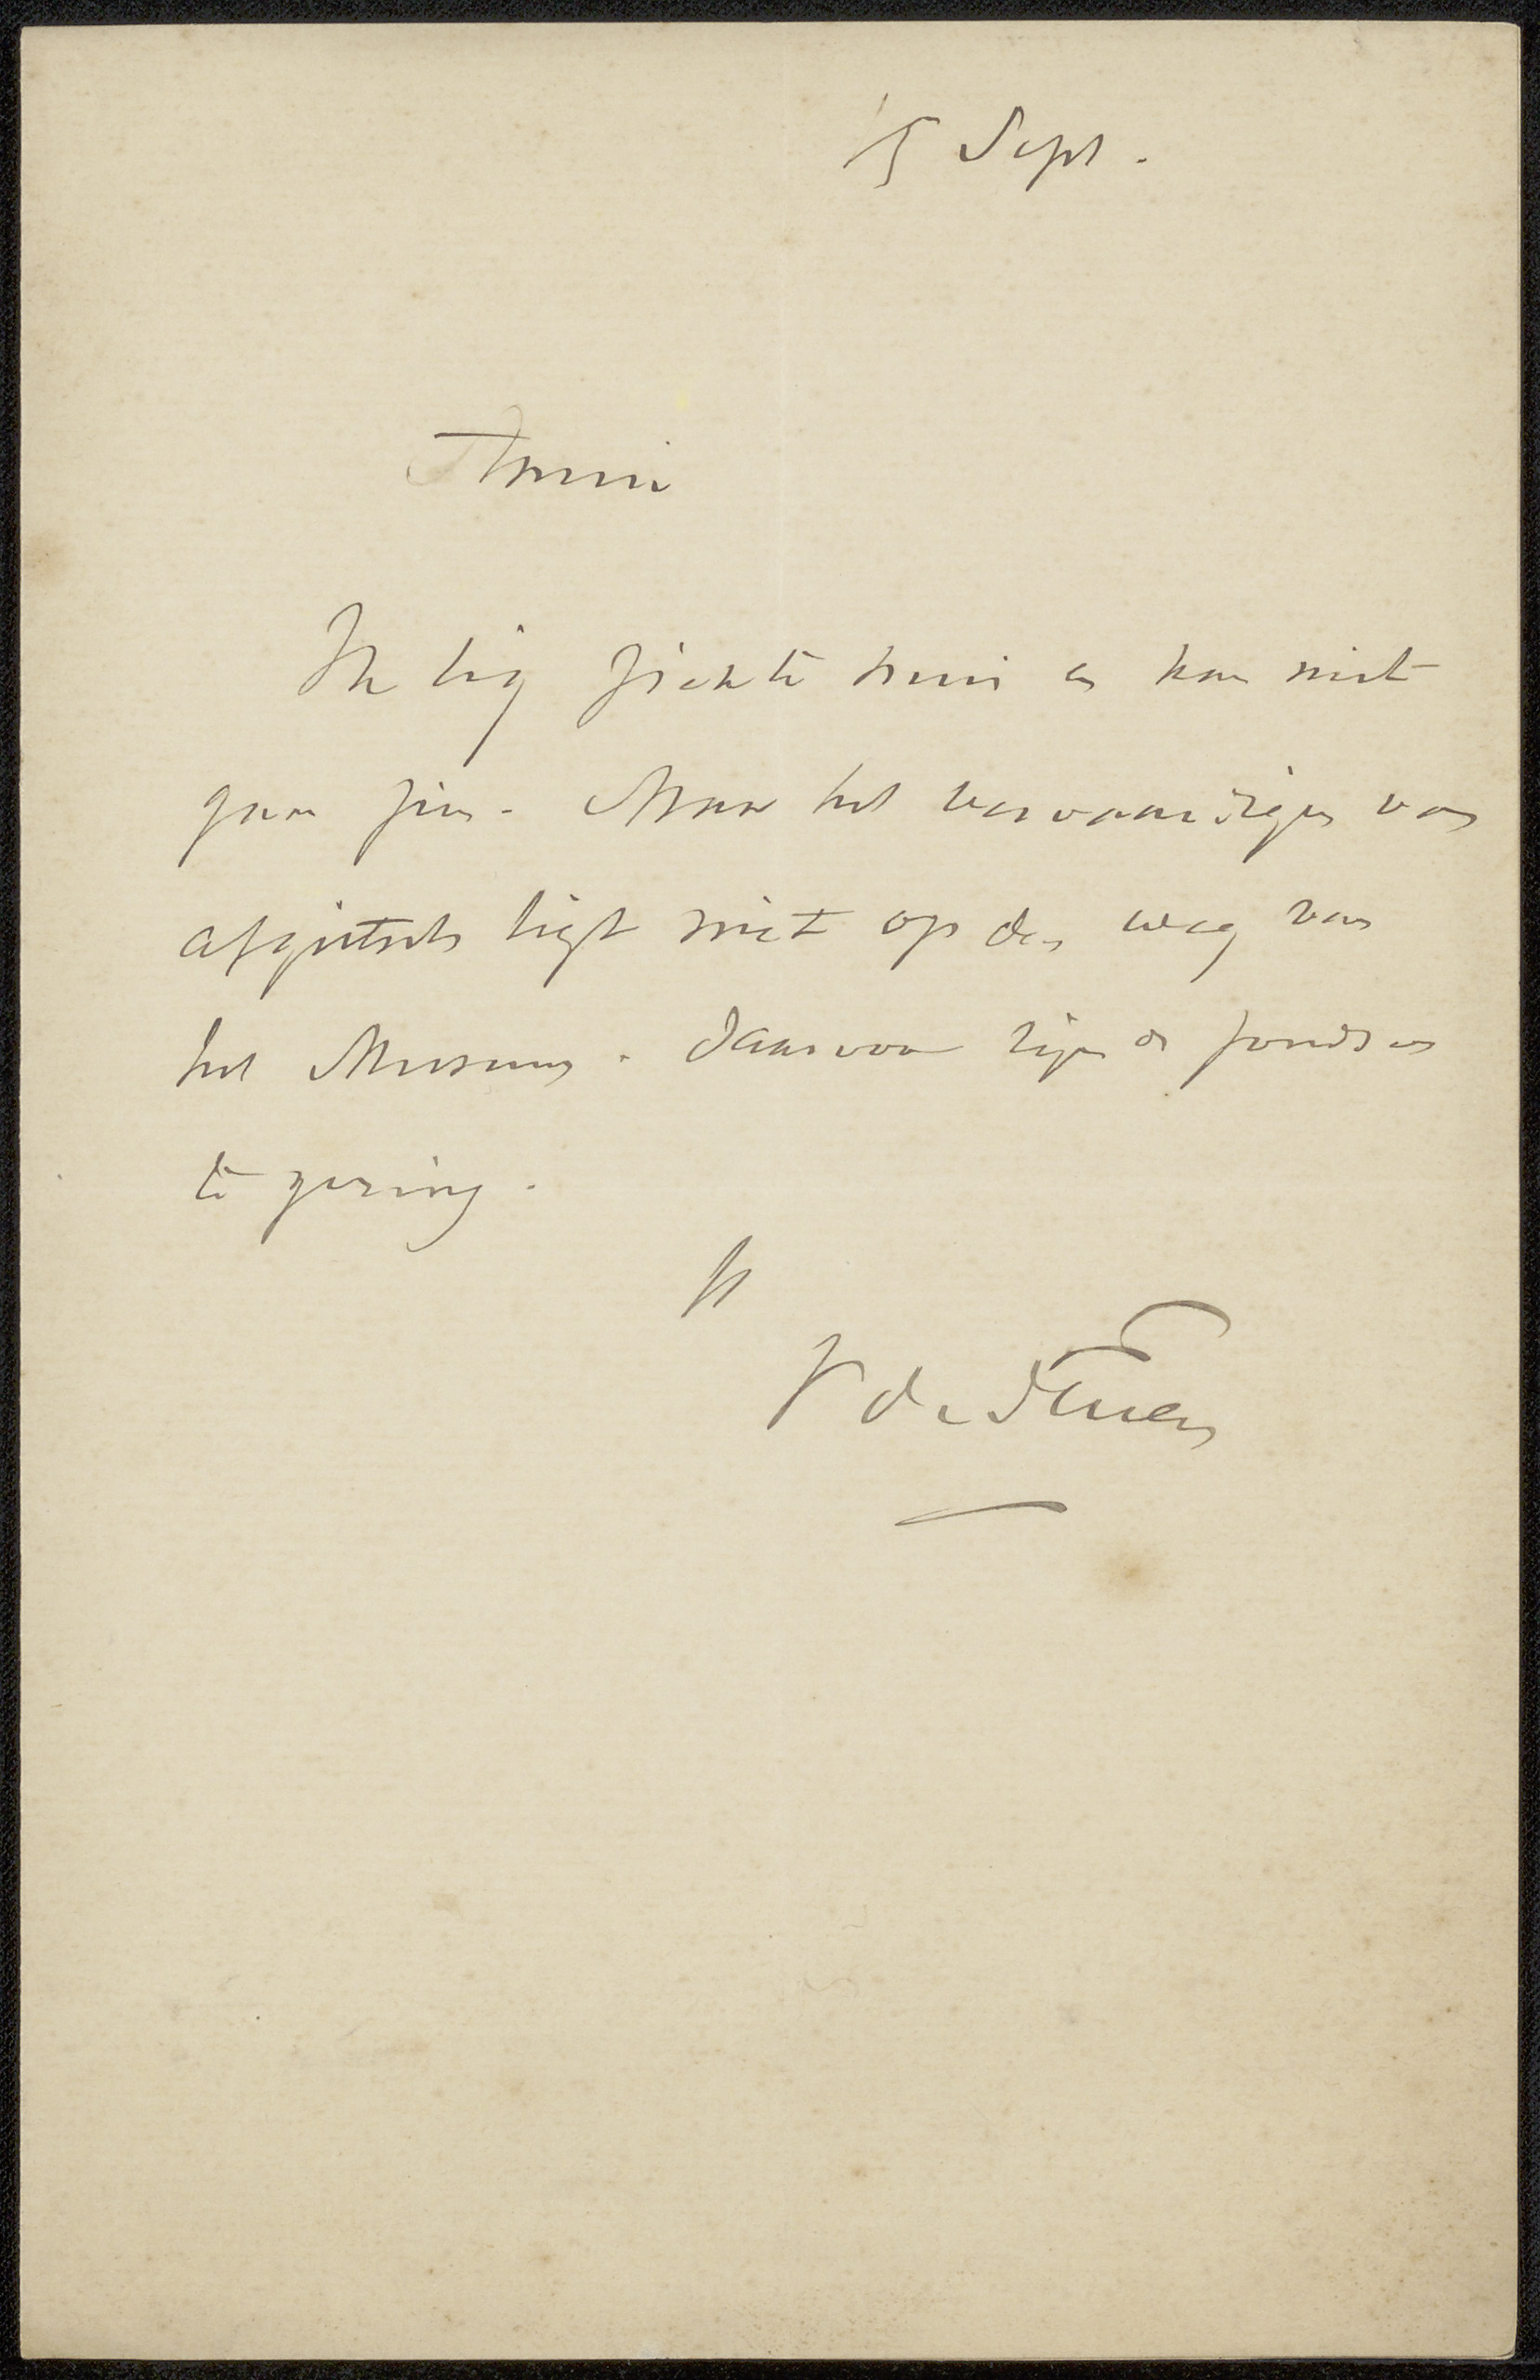 15 Sept.
Amice
Ik lig ziek te huis en kan niet
gaan zien. Maar het vervaardigen van
afgietsels ligt niet op den weg van
het Museum. Daarvoor zijn de fondsen
te gering.
V de Stuers